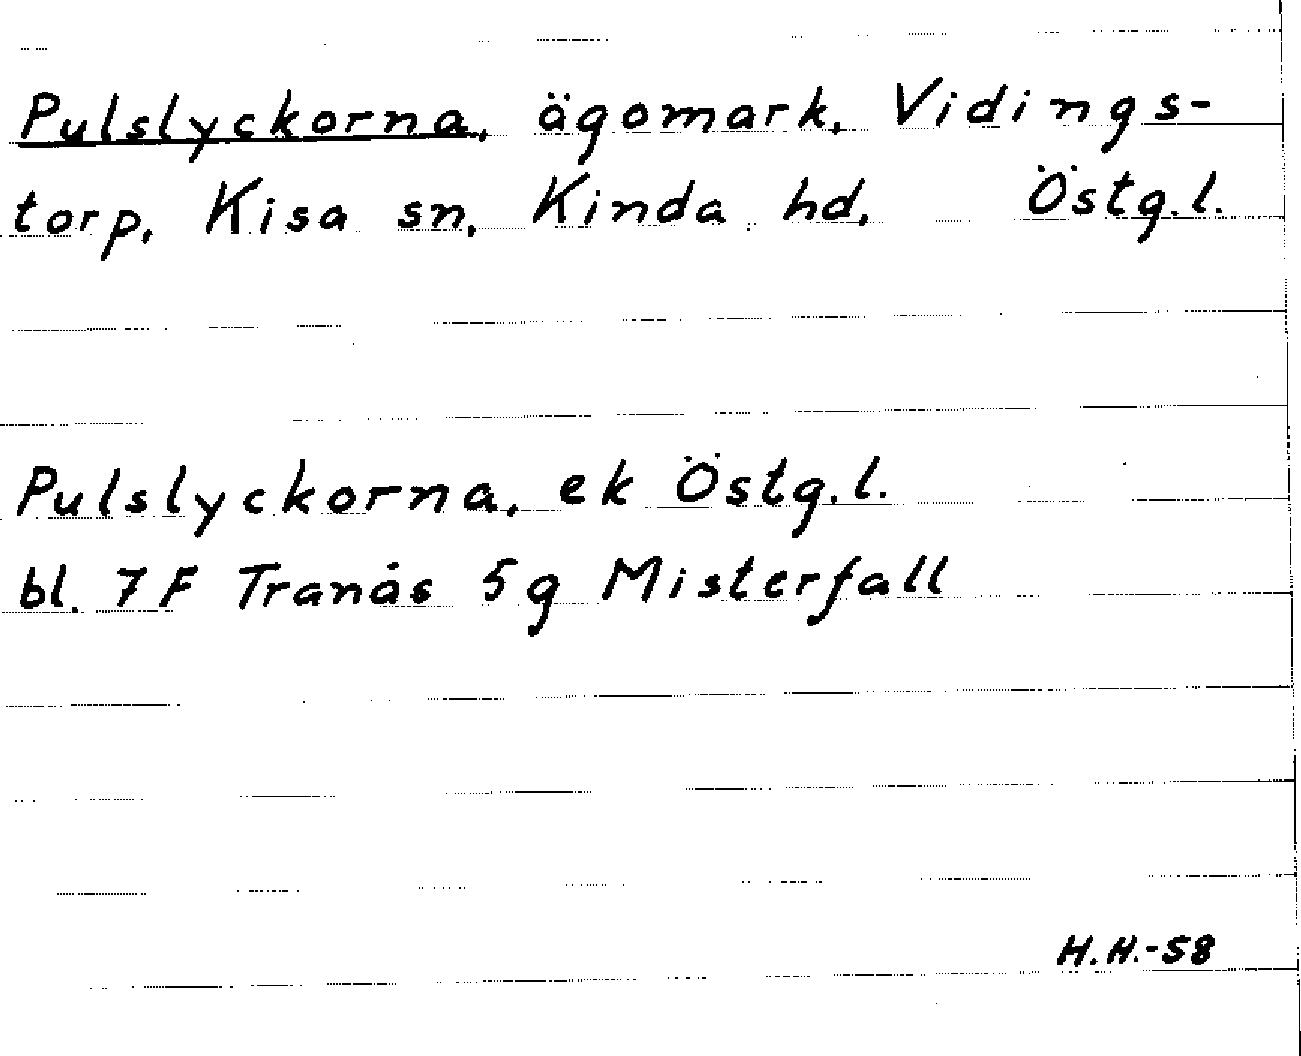 Pulslyckorna, ägomark, Vidings-
torp, Kisa sn, Kinda hd, Östg.l.
Pulslyckorna, ek Östg.l.
bl. 7F Tranås 5g Misterfall
H.H.-58